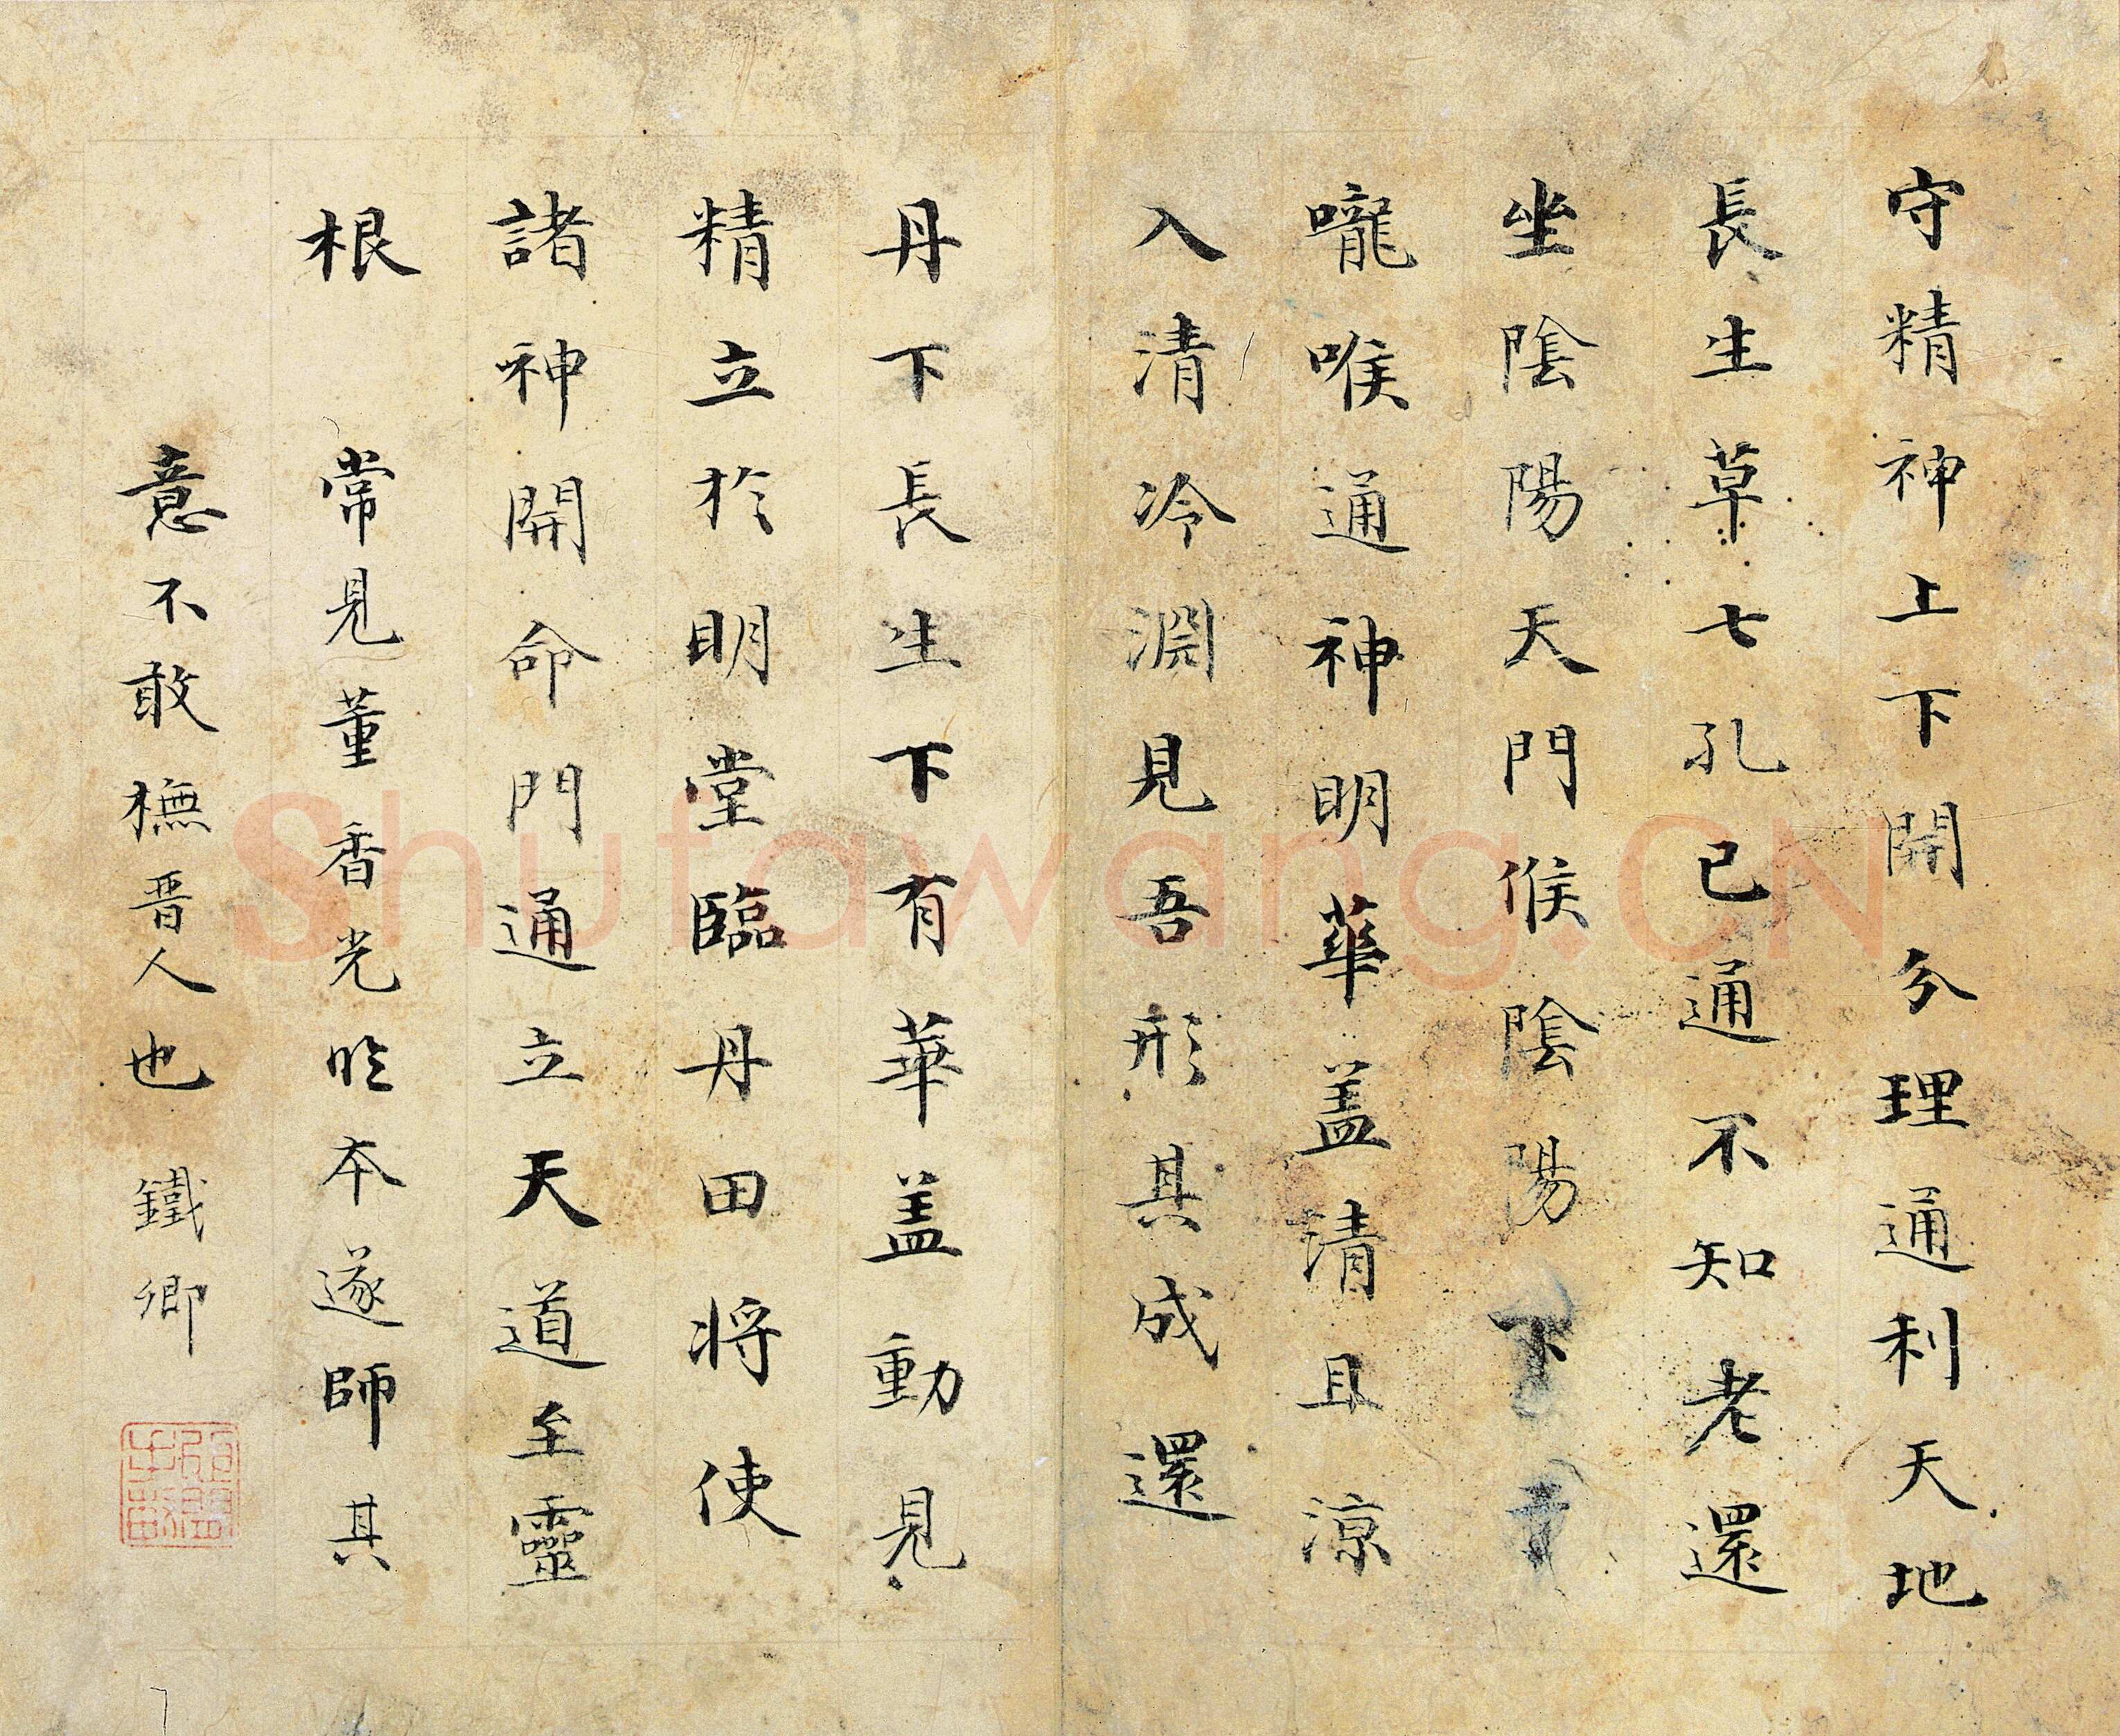 守精神上下開分理通利天地
長生草七孔已通不知老還
坐陰陽天門候陰陽下于
嚨喉通神明華盖清且涼
入清冷淵見吾形其成還
丹下長生下有華盖動見
精立於明堂臨丹田将使
諸神開命門通立天道至靈
根 常見董香光臨本遂師其
意不敢橅晋人也 鐵卿
Shufawang.CN